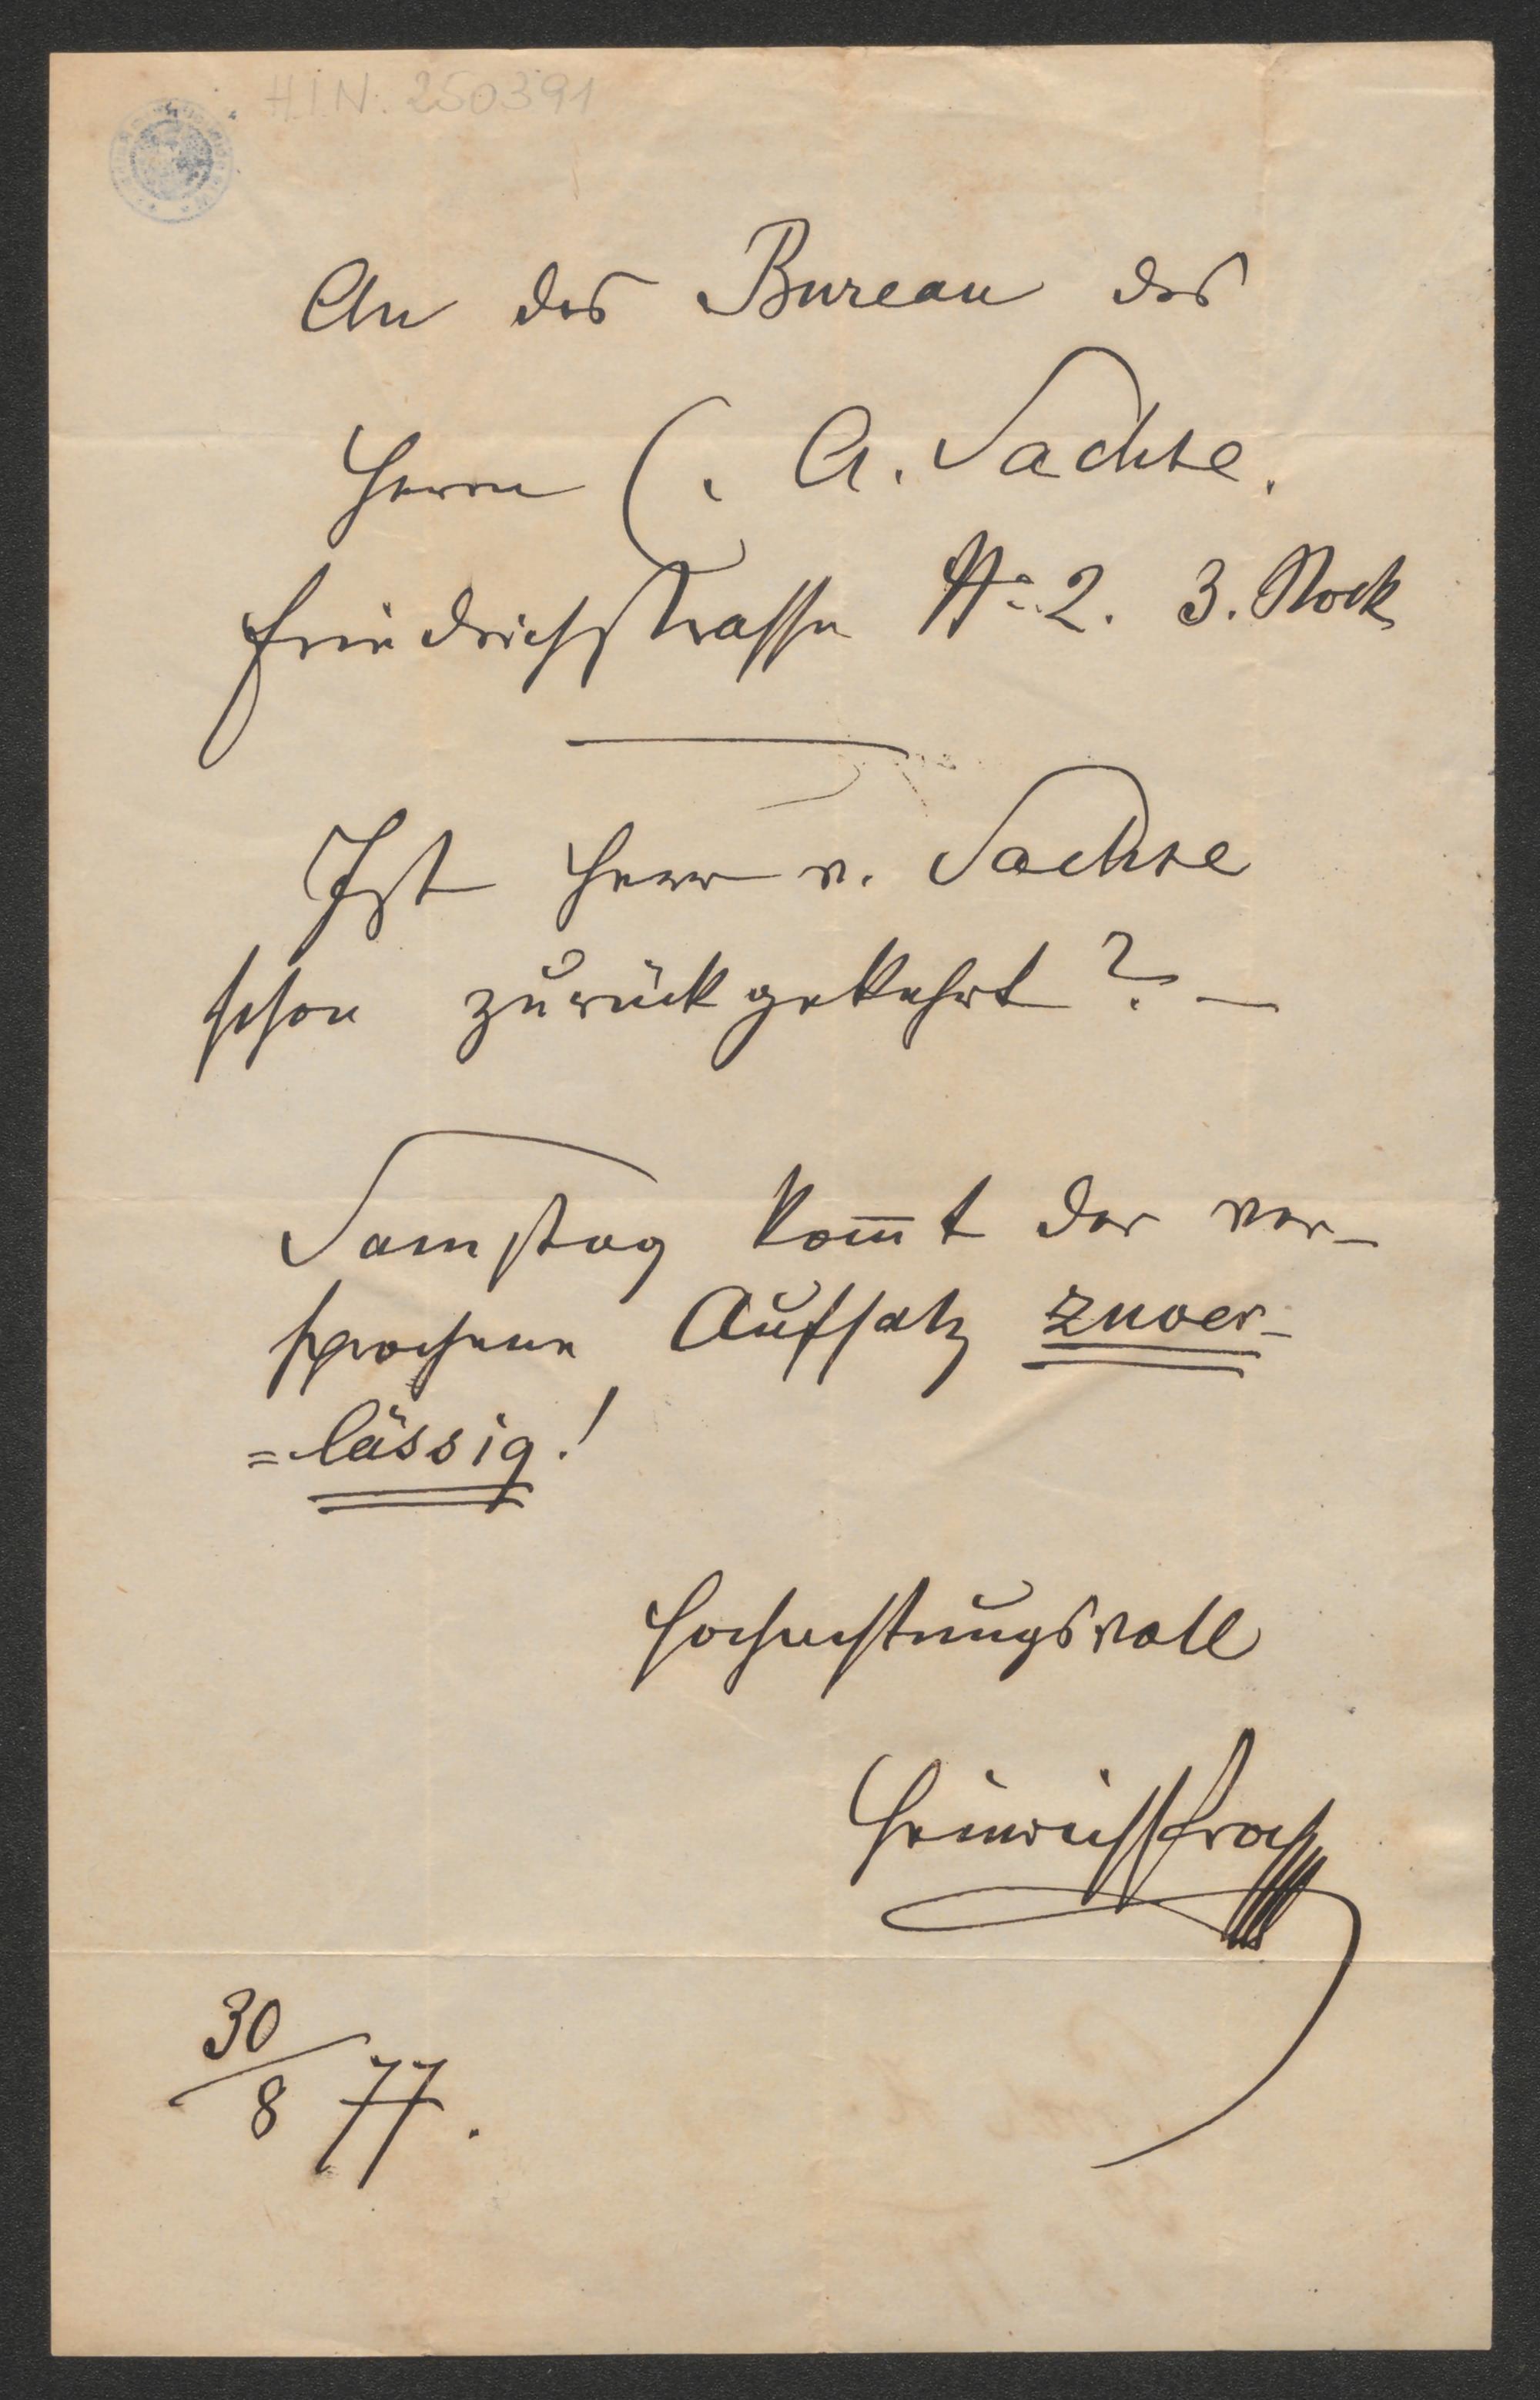 H.I.N. 250391
An das Bureau des
Herrn C. A. Sachse.
Friedrichsstrasse No 2. 3. Stock
Ist Herr v. Sachse
schon zurückgekehrt? –
Samstag kom̅t der ver-
sprochene Aufsatz zuver-
=lässig!
Hochachtungsvoll
Heinrich Proch
30/8 77.